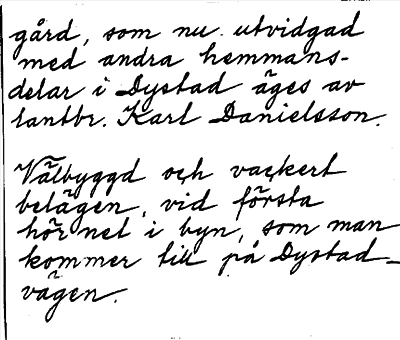 gård, som nu utvidgad
med andra hemmans-
delar i Dystad äges av
lantbr. Karl Danielsson.
Välbyggd och vackert
belägen, vid första
hörnet i byn, som man
kommer till på Dystad-
vägen.